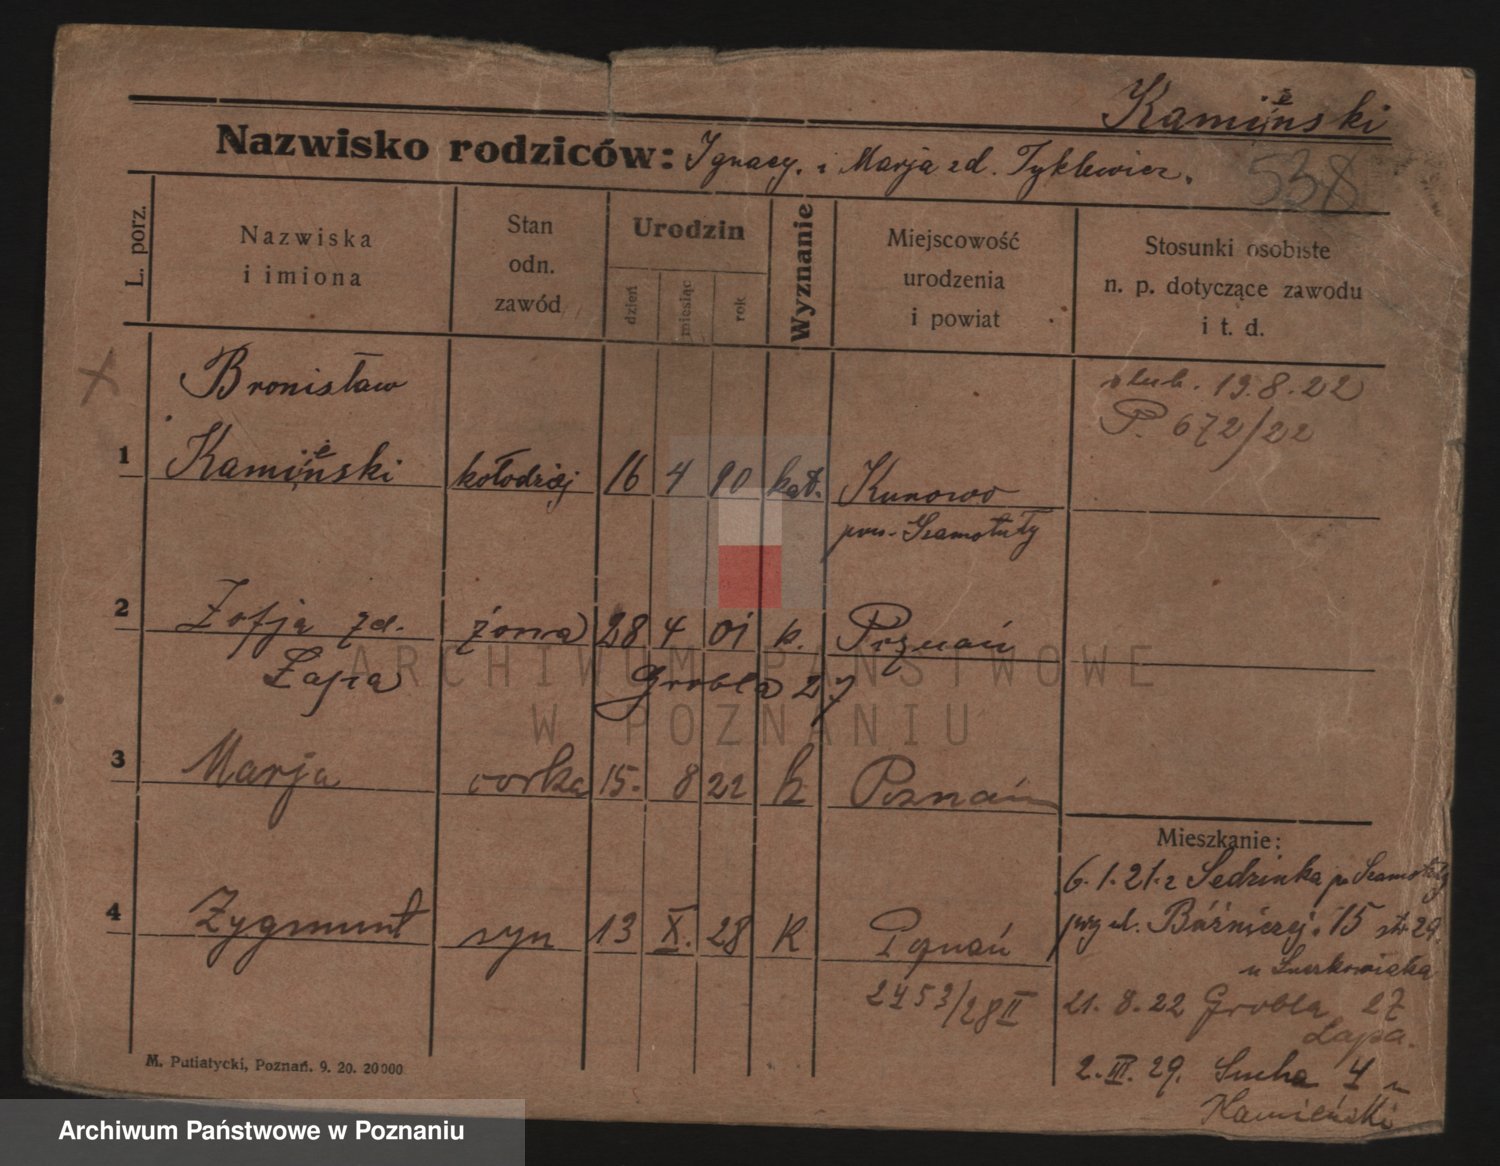 Kamieński
Nazwisko rodziców: Ignacy. i Marja zd. Tyklewicz.
538
L. porz.
Nazwiska
i imiona
Stan
odn.
zawód
Urodzin
dzień
miesiąc
rok
Wyznanie
Miejscowość
urodzenia
i powiat
Stosunki osobiste
n. p. dotyczące zawodu
i t. d.
Bronisław
ślub. 19.8.22
P. 672/22
1 Kamieński kołodziej 16 4 90 kat. Kunowo
pow. Szamotuły
2 Zofja zd. żona 28 4 01 k. Poznań
Łapa Grobla 27
3 Marja corka 15. 8 22 k Poznań
Mieszkanie:
6.1.21. z Sedzinka p. Szamotuły
przy ul. Bóźniczej. 15 str 29.
21. 8. 22 Grobla 27
Łapa.
4 Zygmunt syn 13 X. 28 K Poznań
2453/28 II
2. III. 29. Sucha 4 u
Kamieński
M. Putiatycki, Poznań. 9. 20. 20000
ARCHIWUM PAŃSTWOWE
W POZNANIU
Archiwum Państwowe w Poznaniu